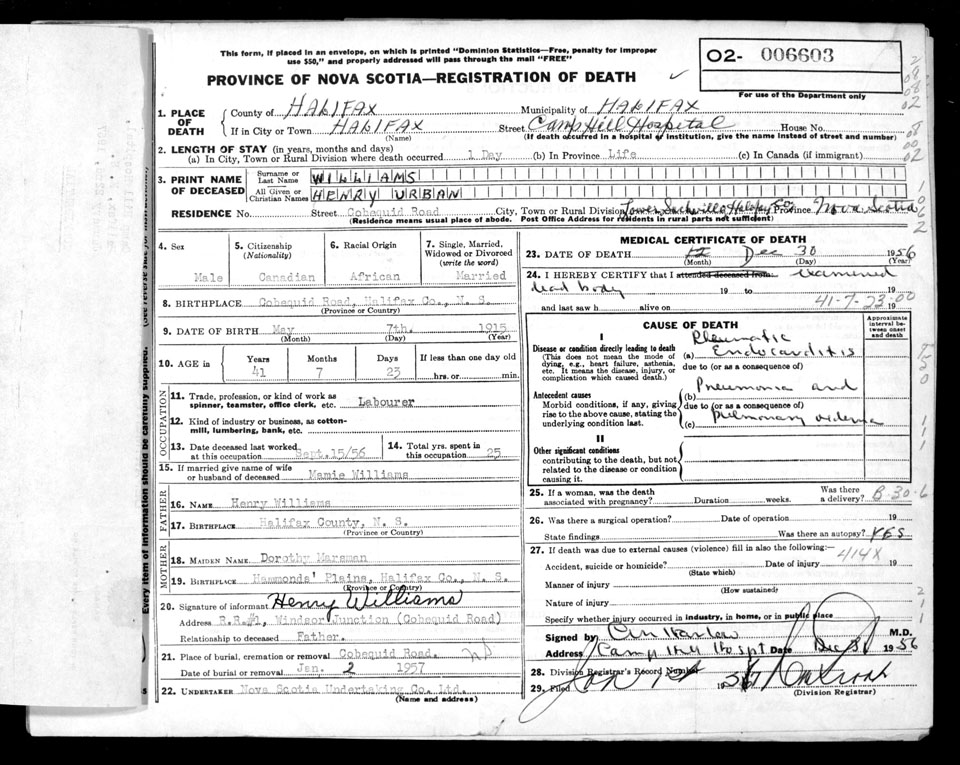 This form, if placed in an envelope, on which is printed "Dominion Statistics—Free, penalty for improper
use $50," and properly addressed will pass through the mail "FREE"
PROVINCE OF NOVA SCOTIA—REGISTRATION OF DEATH
02- 006603
For use of the Department only
1. PLACE OF DEATH
County of HALIFAX Municipality of HALIFAX
If in City or Town HALIFAX Street Camp Hill Hospital House No.
(Name) (If death occurred in a hospital or institution, give the name instead of street and number)
2. LENGTH OF STAY (in years, months and days)
(a) In City, Town or Rural Division where death occurred 1 Day (b) In Province Life (c) In Canada (if immigrant)
3. PRINT NAME OF DECEASED
Surname or Last Name WILLIAMS
All Given or Christian Names HENRY URBAN
RESIDENCE No. Street Cobequid Road City, Town or Rural Division Lower Sackville Halifax Co. Province Nova Scotia
(Residence means usual place of abode. Post Office Address for residents in rural parts not sufficient)
4. Sex Male
5. Citizenship (Nationality) Canadian
6. Racial Origin African
7. Single, Married, Widowed or Divorced (write the word) Married
8. BIRTHPLACE Cobequid Road, Halifax Co., N. S.
(Province or Country)
9. DATE OF BIRTH May 7th. 1915
(Month) (Day) (Year)
10. AGE in Years Months Days If less than one day old
41 7 23 hrs. or min.
OCCUPATION
11. Trade, profession, or kind of work as spinner, teamster, office clerk, etc. Labourer
12. Kind of industry or business, as cotton-mill, lumbering, bank, etc.
13. Date deceased last worked at this occupation Sept.15/56
14. Total yrs. spent in this occupation 25
15. If married give name of wife or husband of deceased Mamie Williams
FATHER
16. NAME Henry Williams
17. BIRTHPLACE Halifax County, N. S.
(Province or Country)
MOTHER
18. MAIDEN NAME Dorothy Marsman
19. BIRTHPLACE Hammonds' Plains, Halifax Co., N. S.
(Province or Country)
20. Signature of informant Henry Williams
Address R.R.#1, Windsor Junction (Cobequid Road)
Relationship to deceased Father.
21. Place of burial, cremation or removal Cobequid Road.
Date of burial or removal Jan. 2 1957
22. UNDERTAKER Nova Scotia Undertaking Co. Ltd.
(Name and address)
MEDICAL CERTIFICATE OF DEATH
23. DATE OF DEATH Dec 30 1956
(Month) (Day) (Year)
24. I HEREBY CERTIFY that I attended deceased from examined
dead body 19 to 19
and last saw h alive on 19
41-7-23-00
CAUSE OF DEATH
Approximate interval between onset and death
I
Disease or condition directly leading to death
(This does not mean the mode of dying, e.g., heart failure, asthenia, etc. It means the disease, injury, or complication which caused death.)
(a) Rheumatic Endocarditis
due to (or as a consequence of)
Antecedent causes
Morbid conditions, if any, giving rise to the above cause, stating the underlying condition last.
(b) Pneumonia and
due to (or as a consequence of)
(c) Pulmonary oedema
II
Other significant conditions
contributing to the death, but not related to the disease or condition causing it.
25. If a woman, was the death associated with pregnancy? Duration weeks. Was there a delivery?
B-30-6
26. Was there a surgical operation? Date of operation 19
State findings Was there an autopsy? YES
27. If death was due to external causes (violence) fill in also the following:—
414X
Accident, suicide or homicide? Date of injury 19
(State which)
Manner of injury
(How sustained)
Nature of injury
Specify whether injury occurred in industry, in home, or in public place
Signed by M.D.
Address Camp Hill Hospt Date Dec 31 1956
28. Division Registrar's Record Number
29. Filed Jan 1957
(Division Registrar)
Every item of information should be carefully supplied.